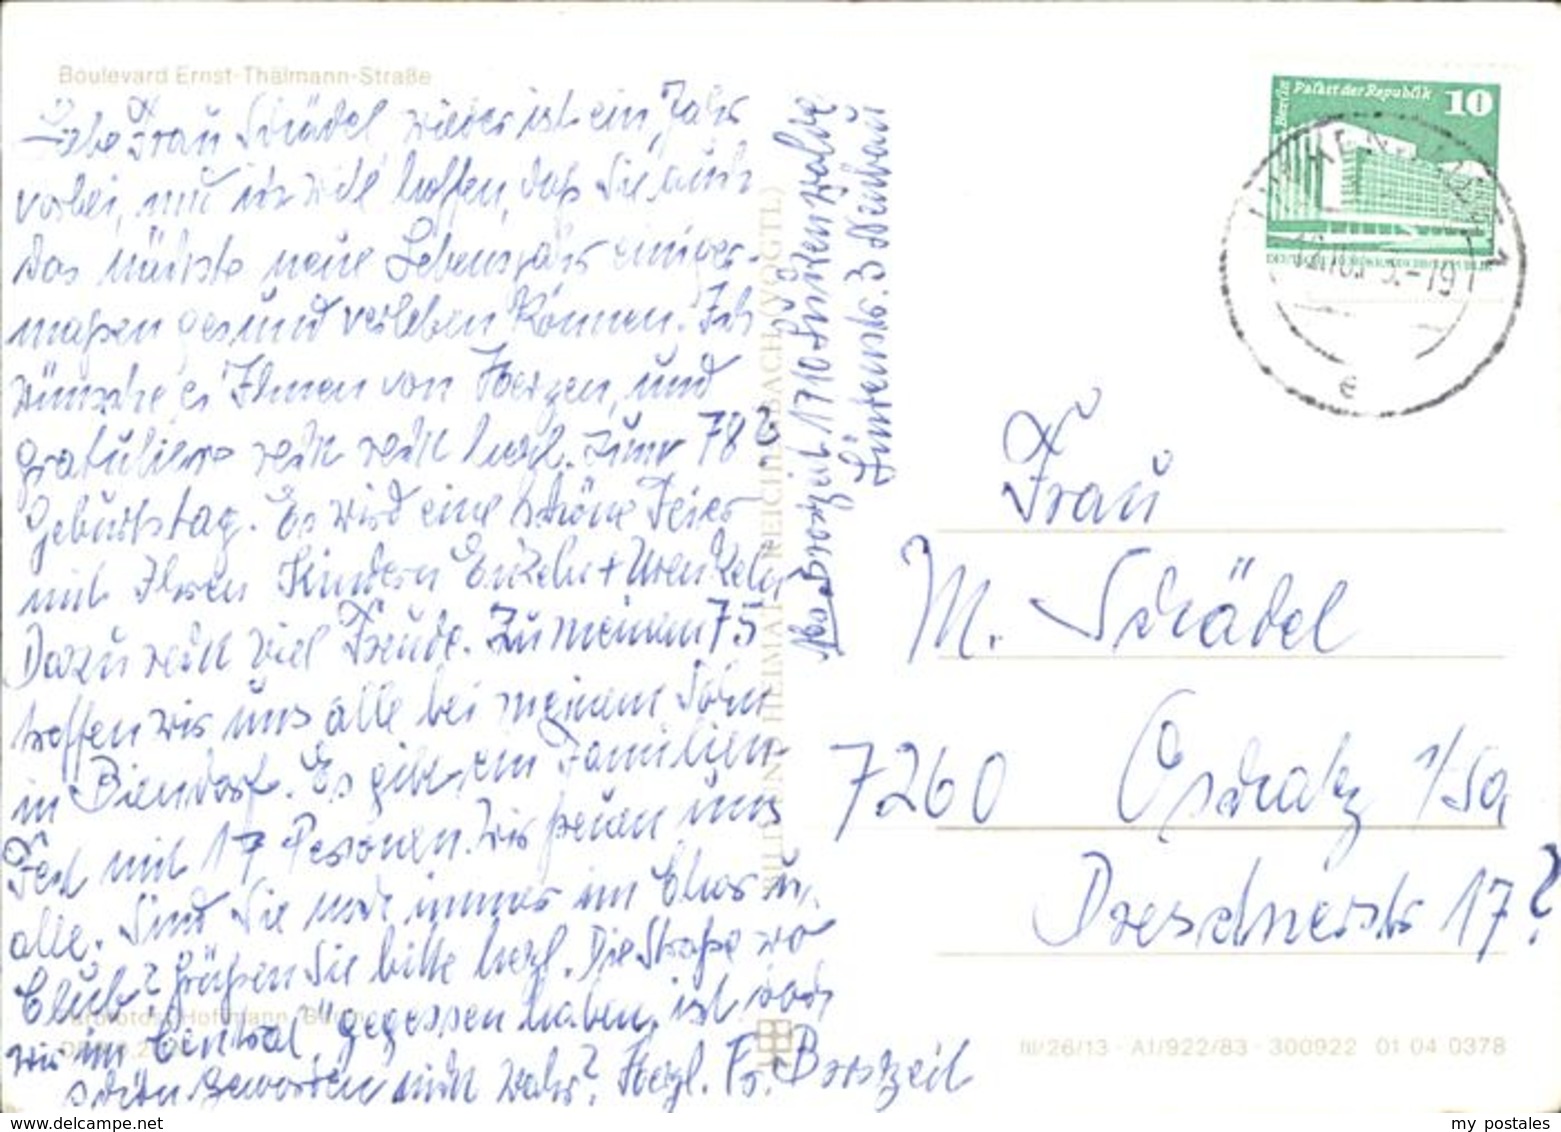 Boulevard Ernst-Thälmann-Straße
Liebe Frau Schädel wieder ist ein Jahr
vorbei, und ich will hoffen, daß Sie auch
das nächste neue Lebensjahr einiger-
maßen gesund verleben können. Ich
wünsche es Ihnen von Herzen, und
gratuliere recht recht herzl. zum 78?
Geburtstag. Es wird eine schöne Feier
mit Ihren Kindern Enkeln + Urenkeln
Dazu recht viel Freude. Zu meinem 75
treffen wir uns alle bei meinem Sohn
in Biendorf. Es gibt ein Familien-
Fest mit 17 Personen. Wir freuen uns
alle. Sind Sie noch immer im Chor u.
Club? Grüßen Sie bitte herzl. Die Straße wo
wir im "Central" gegessen haben, ist doch
schön geworden nicht wahr? Herzl. Fr. Borszeil
Abs. 1710 Luckenwalde
3 Neubau
BILD UND HEIMAT REICHENBACH (VOGTL)
Berlin
Palast der Republik
10
Frau
M. Schädel
7260 Oschatz i/Sa
Dresdnerstr 17?
III/26/13 · A1/922/83 · 300922 01 04 0378
my postales
www.delcampe.net